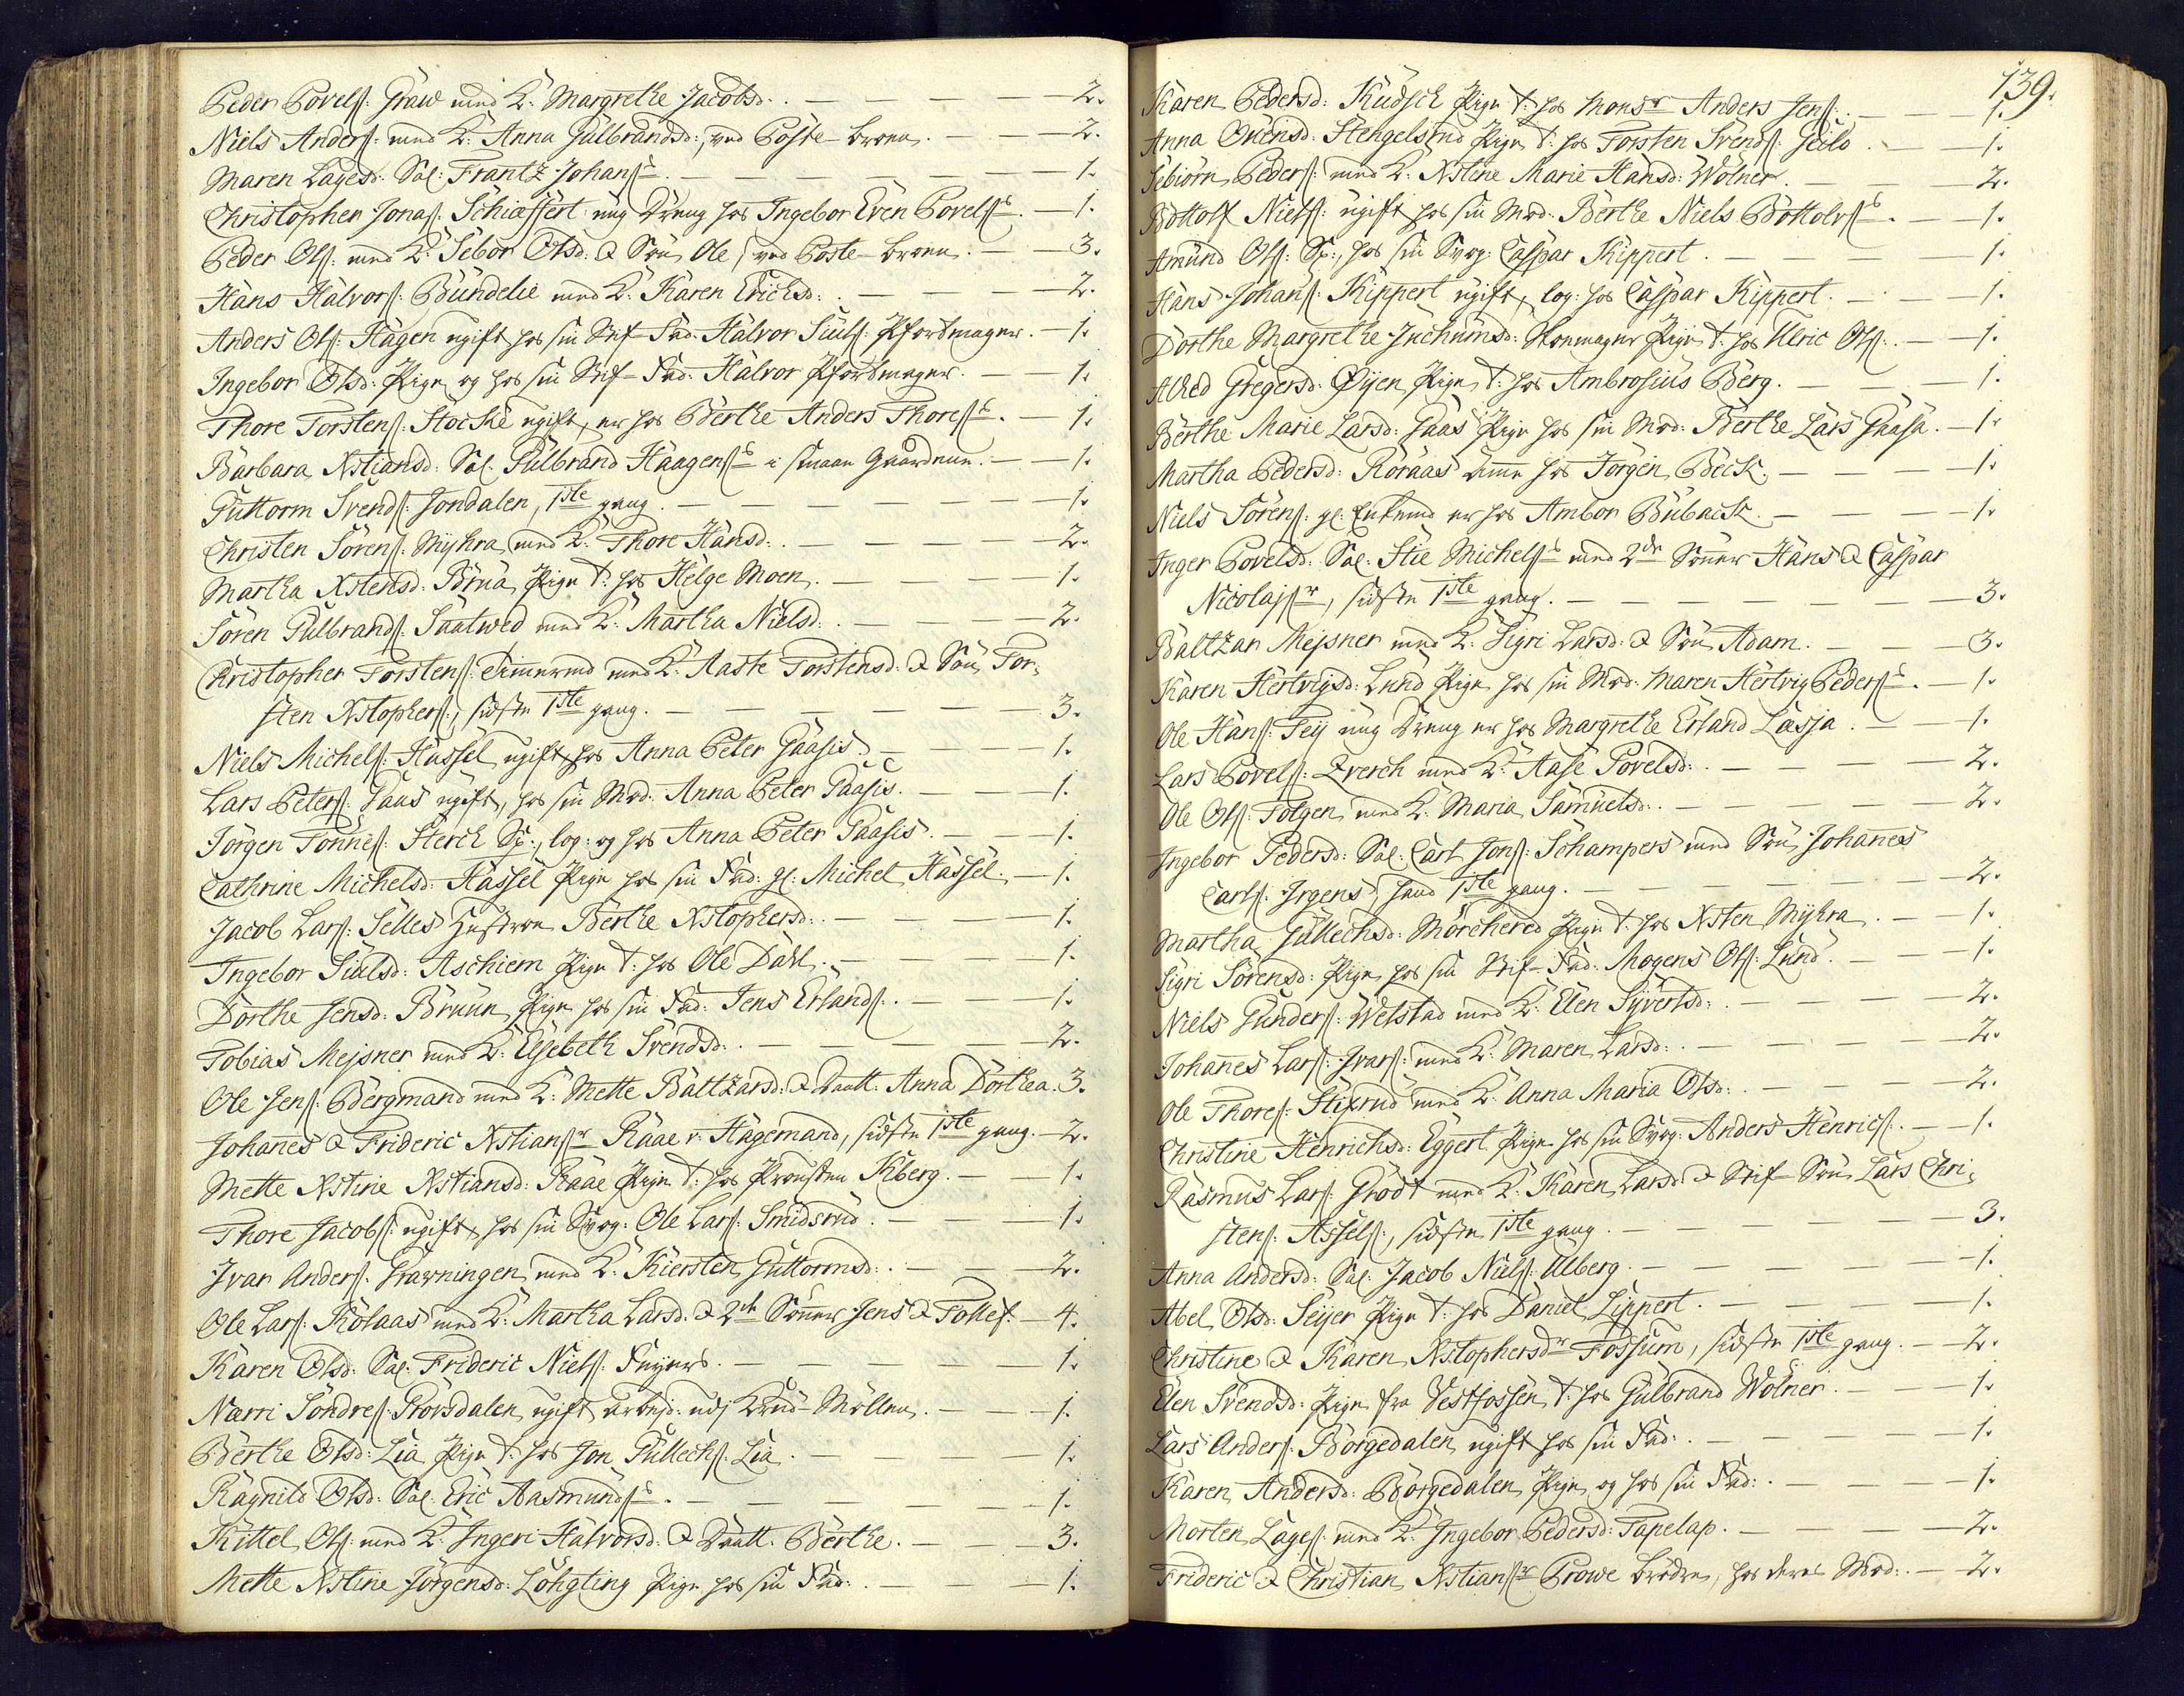 Peder Povels: Graw med K: Margrethe Jacobsd: . — — — — 2.
Niels Anders: med K: Anna Gulbrandsd:, ved Poste-broen. — — 2.
Maren Lagesd: Sal: Frantz Johans — — — — — 1.
Christopher Jonas: Schiæffert ung Dreng hos Ingebor Even Povels — 1.
Peder Ols: med K: Sebor Olsd: & Søn Ole, ved Poste-broen. — 3.
Hans Halvors: Bundelie med K: Karen Erichsd: . — — — 2.
Anders Ols: Hagen ugift hos sin Stif-Fad: Halvor Siuls: Pfortmager. — 1.
Ingebor Olsd: Pige og hos sin Stif-Fad: Halvor Pfortmager. — — 1.
Thore Torstens: Stocke ugift, er hos Berthe Anders Thores — 1.
Barbara Xstiansd: Sal: Gulbrand Haagens i smaae Gaardene. — 1.
Guttorm Svends: Jondalen, 1ste gang. — — — — 1.
Christen Sörens: Myhra med K: Thore Hansd: . — — — 2.
Martha Xstensd: Brua, Pige t: hos Helge Moen. — — — 1.
Sören Gulbrands: Saatwed med K: Martha Nielsd: . — — — 2.
Christopher Torstens: Timermd med K: Aaste Torstensd: & Søn Tor-
sten Xstophers:, sidste 1ste gang. — — — — 3.
Niels Michels: Hassel ugift hos Anna Peter Gaasis. — — 1.
Lars Peters: Gaas ugift, hos sin Mod: Anna Peter Gaasis. — — 1.
Jörgen Tönnes: Sterch Sp:, log: og hos Anna Peter Gaasis. — — 1.
Cathrine Michelsd: Hassel Pige hos sin Fad: gl: Michel Hassel. — 1.
Jacob Lars: Selles Hustroe Berthe Xstophersd: . — — — 1.
Ingebor Siulsd: Aschiem Pige t: hos Ole Dahl. — — — 1.
Dorthe Jensd: Bruun Pige hos sin Fad: Jens Erlands: . — — 1.
Tobias Mejsner med K: Elsebeth Svendsd: . — — — 2.
Ole Jens: Bergmand med K: Mette Baltzarsd: & Datt: Anna Dorthea. 3.
Johanes & Frideric Xstians Raae v: Hagemand, sidste 1ste gang. — 2.
Mette Xstine Xstiansd: Raae Pige t: hos Provsten Kberg. — 1.
Thore Jacobs: ugift hos sin Svog: Ole Lars: Smidsrud. — — 1.
Ivar Anders: Gravningen med K: Kiersten Guttormsd: . — — 2.
Ole Lars: Kolaas med K: Martha Larsd: & 2de Sønner Jens & Tollef. — 4.
Karen Olsd: Sal: Frideric Niels: — — — 1.
Narri Söndres: Grovsdalen ugift arbejd: udj Krud-Møllen. — — 1.
Berthe Olsd: Lia Pige t: hos Jon Gullechs: Lia. — — — 1.
Ragnild Olsd: Sal: Eric Aasmunds — — — — 1.
Kittel Ols: med K: Ingeri Halvorsd: & Datt: Berthe. — — 3.
Mette Xstine Jörgensd: Löhgting Pige hos sin Fad: . — — 1.
139.
Karen Pedersd: Kudsch Pige t: hos Monsr Anders Jens: . — — 1.
Anna Ovensd: Stengelsrud Pige t: hos Torsten Svends: Geilo. — — 1.
Sebiörn Peders: med K: Xstine Marie Hansd: Wölner. — — 2.
Bottolf Niels: ugift hos sin Mod: Berthe Niels Bottolvs — 1.
Amund Ols: Sp:, hos sin Svog: Caspar Kippert. — — — 1.
Hans Johans: Kippert ugift, log: hos Caspar Kippert. — — 1.
Dorthe Margrethe Juchumsd: Skomager Pige t: hos Ulric Ols: . — 1.
Alhed Gregersd: Øyen, Pige t: hos Ambrosius Berg. — — 1.
Berthe Marie Larsd: Gaas Pige hos sin Mod: Berthe Lars Gaasa. — 1.
Martha Pedersd: Röraas Amme hos Jörgen Beck. — — — 1.
Niels Sörens: gl: Enkemd er hos Ambor Bubach. — — — 1.
Inger Povelsd: Sal: Stie Michels med 2de Sønner Hans & Caspar
Nicolajs, sidste 1ste gang. — — — — 3.
Baltzar Mejsner med K: Sigri Larsd: & Søn Adam. — — 3.
Karen Hertvigsd: Lund Pige hos sin Mod: Maren Hertvig Peders — 1.
Ole Hans: Fey ung Dreng er hos Margrethe Erland Læsja. — — 1.
Lars Povels: Qverch med K: Aase Povelsd: . — — — 2.
Ole Ols: Folgen med K: Maria Samuelsd: . — — — 2.
Ingebor Pedersd: Sal: Carl Jons: Schampers med Søn Johanes
Carls: Irgens, hand 1ste gang. — — — — 2.
Martha Gullechsd: Mörchered Pige t: hos Xsten Myhra. — — 1.
Sigri Sörensd: Pige hos sin Stif-Fad: Mogens Ols: Lund. — — 1.
Niels Gunders: Welstad med K: Elen Syvertsd: . — — — 2.
Johanes Lars: Ivars: med K: Maren Larsd: . — — — 2.
Ole Thores: Stixrud med K: Anna Maria Olsd: . — — — 2.
Christine Henrichsd: Eggert Pige hos sin Svog: Anders Henrics: . — 1.
Rasmus Lars: Grödt med K: Karen Larsd: & Stif-Søn Lars Chri-
stens: Assels:, sidste 1ste gang. — — — — 3.
Anna Andersd: Sal: Jacob Niels: Ulberg. — — — — 1.
Abel Olsd: Seyer Pige t: hos Daniel Lippert. — — — 1.
Christine & Karen Xstophersdr Fossum, sidste 1ste gang. — 2.
Elen Svendsd: Pige fra Vestfossen t: hos Gulbrand Wölner. — — 1.
Lars Anders: Borgedalen ugift hos sin Fad: . — — — 1.
Karen Andersd: Borgedalen Pige og hos sin Fad: . — — — 1.
Morten Lages: med K: Ingebor Pedersd: Tapelap. — — — 2.
Frideric & Christian Xstians Prowe brødre, hos deres Mod: . — 2.